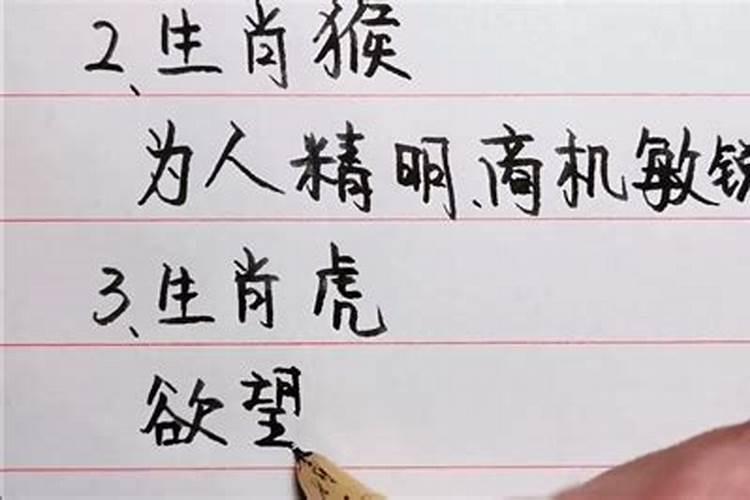 2、生肖猴
为人精明、商机敏锐
3、生肖虎
欲望